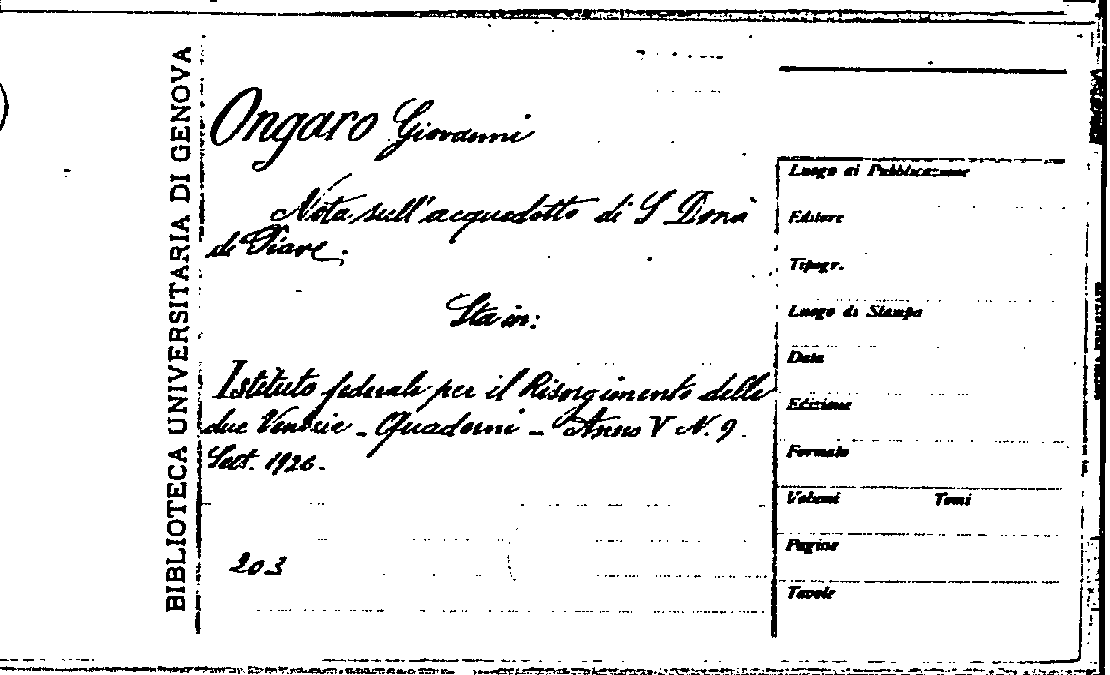 BIBLIOTECA UNIVERSITARIA DI GENOVA
Ongaro Giovanni
Nota sull'acquedotto di S Donà
di Piave.
Sta in:
Istituto federale per il Risorgimento delle
due Venezie - Quaderni - Anno V N. 9.
Sett. 1926.
203
Luogo di Pubblicazione
Editore
Tipogr.
Luogo di Stampa
Data
Edizione
Formato
Volumi Tomi
Pagine
Tavole